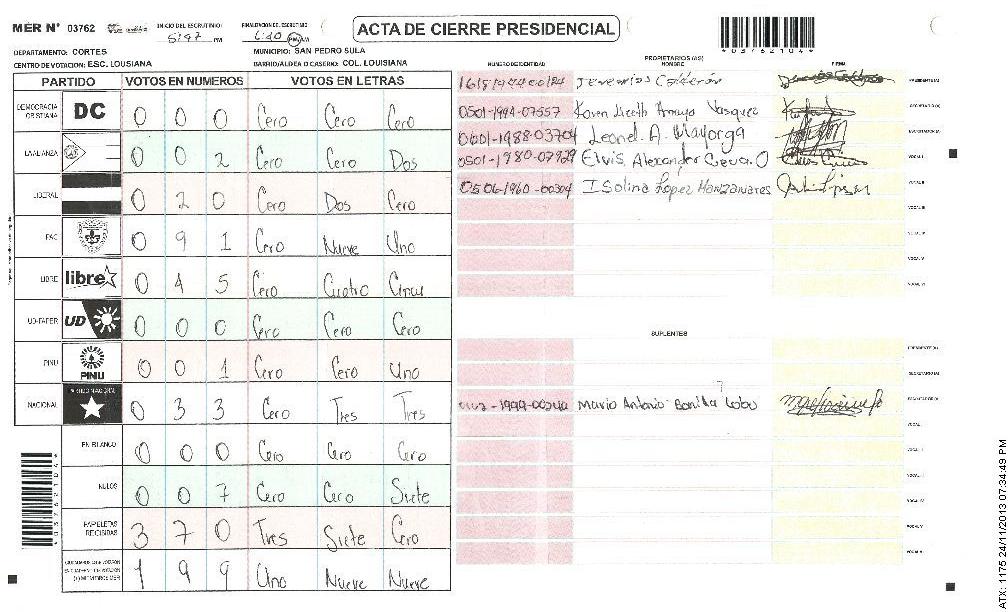 MER N° 03762 INICIO DEL ESCRUTINIO: 5:47 PM FINALIZACION DEL ESCRUTINIO 6:40 PM
ACTA DE CIERRE PRESIDENCIAL
03762104
DEPARTAMENTO: CORTES MUNICIPIO: SAN PEDRO SULA
CENTRO DE VOTACION: ESC. LOUSIANA BARRIO/ALDEA O CASERIO: COL. LOUISIANA
PARTIDO VOTOS EN NUMEROS VOTOS EN LETRAS
DEMOCRACIA CRISTIANA DC 0 0 0 Cero Cero Cero
LA ALIANZA 0 0 2 Cero Cero Dos
LIBERAL 0 2 0 Cero Dos Cero
PAC 0 9 1 Cero Nueve Uno
LIBRE libre 0 4 5 Cero Cuatro Cinco
UD-FAPER UD 0 0 0 Cero Cero Cero
PINU PINU 0 0 1 Cero Cero Uno
NACIONAL PARTIDO NACIONAL 0 3 3 Cero Tres Tres
EN BLANCO 0 0 0 Cero Cero Cero
NULOS 0 0 7 Cero Cero Siete
PAPELETAS RECIBIDAS 3 7 0 Tres Siete Cero
1 9 9 Uno Nueve Nueve
PROPIETARIOS (AS)
NUMERO DE IDENTIDAD NOMBRE FIRMA
Jeremias Calderón PRESIDENTE (A)
0501-1994-07557 Karen Liceth Araujo Vasquez SECRETARIO (A)
0601-1988-03704 Leonel A. Mayorga ESCRUTADOR (A)
0501-1980-07929 Elvis Alexander VOCAL I
0506-1960-00304 Isolina Lopez Manzanares VOCAL II
VOCAL III
VOCAL IV
VOCAL V
VOCAL VI
SUPLENTES
PRESIDENTE (A)
SECRETARIO (A)
Mario Antonio Bonilla Lobo ESCRUTADOR (A)
VOCAL I
VOCAL II
VOCAL III
VOCAL IV
VOCAL V
VOCAL VI
ATX: 1175 24/11/2013 07:34:49 PM